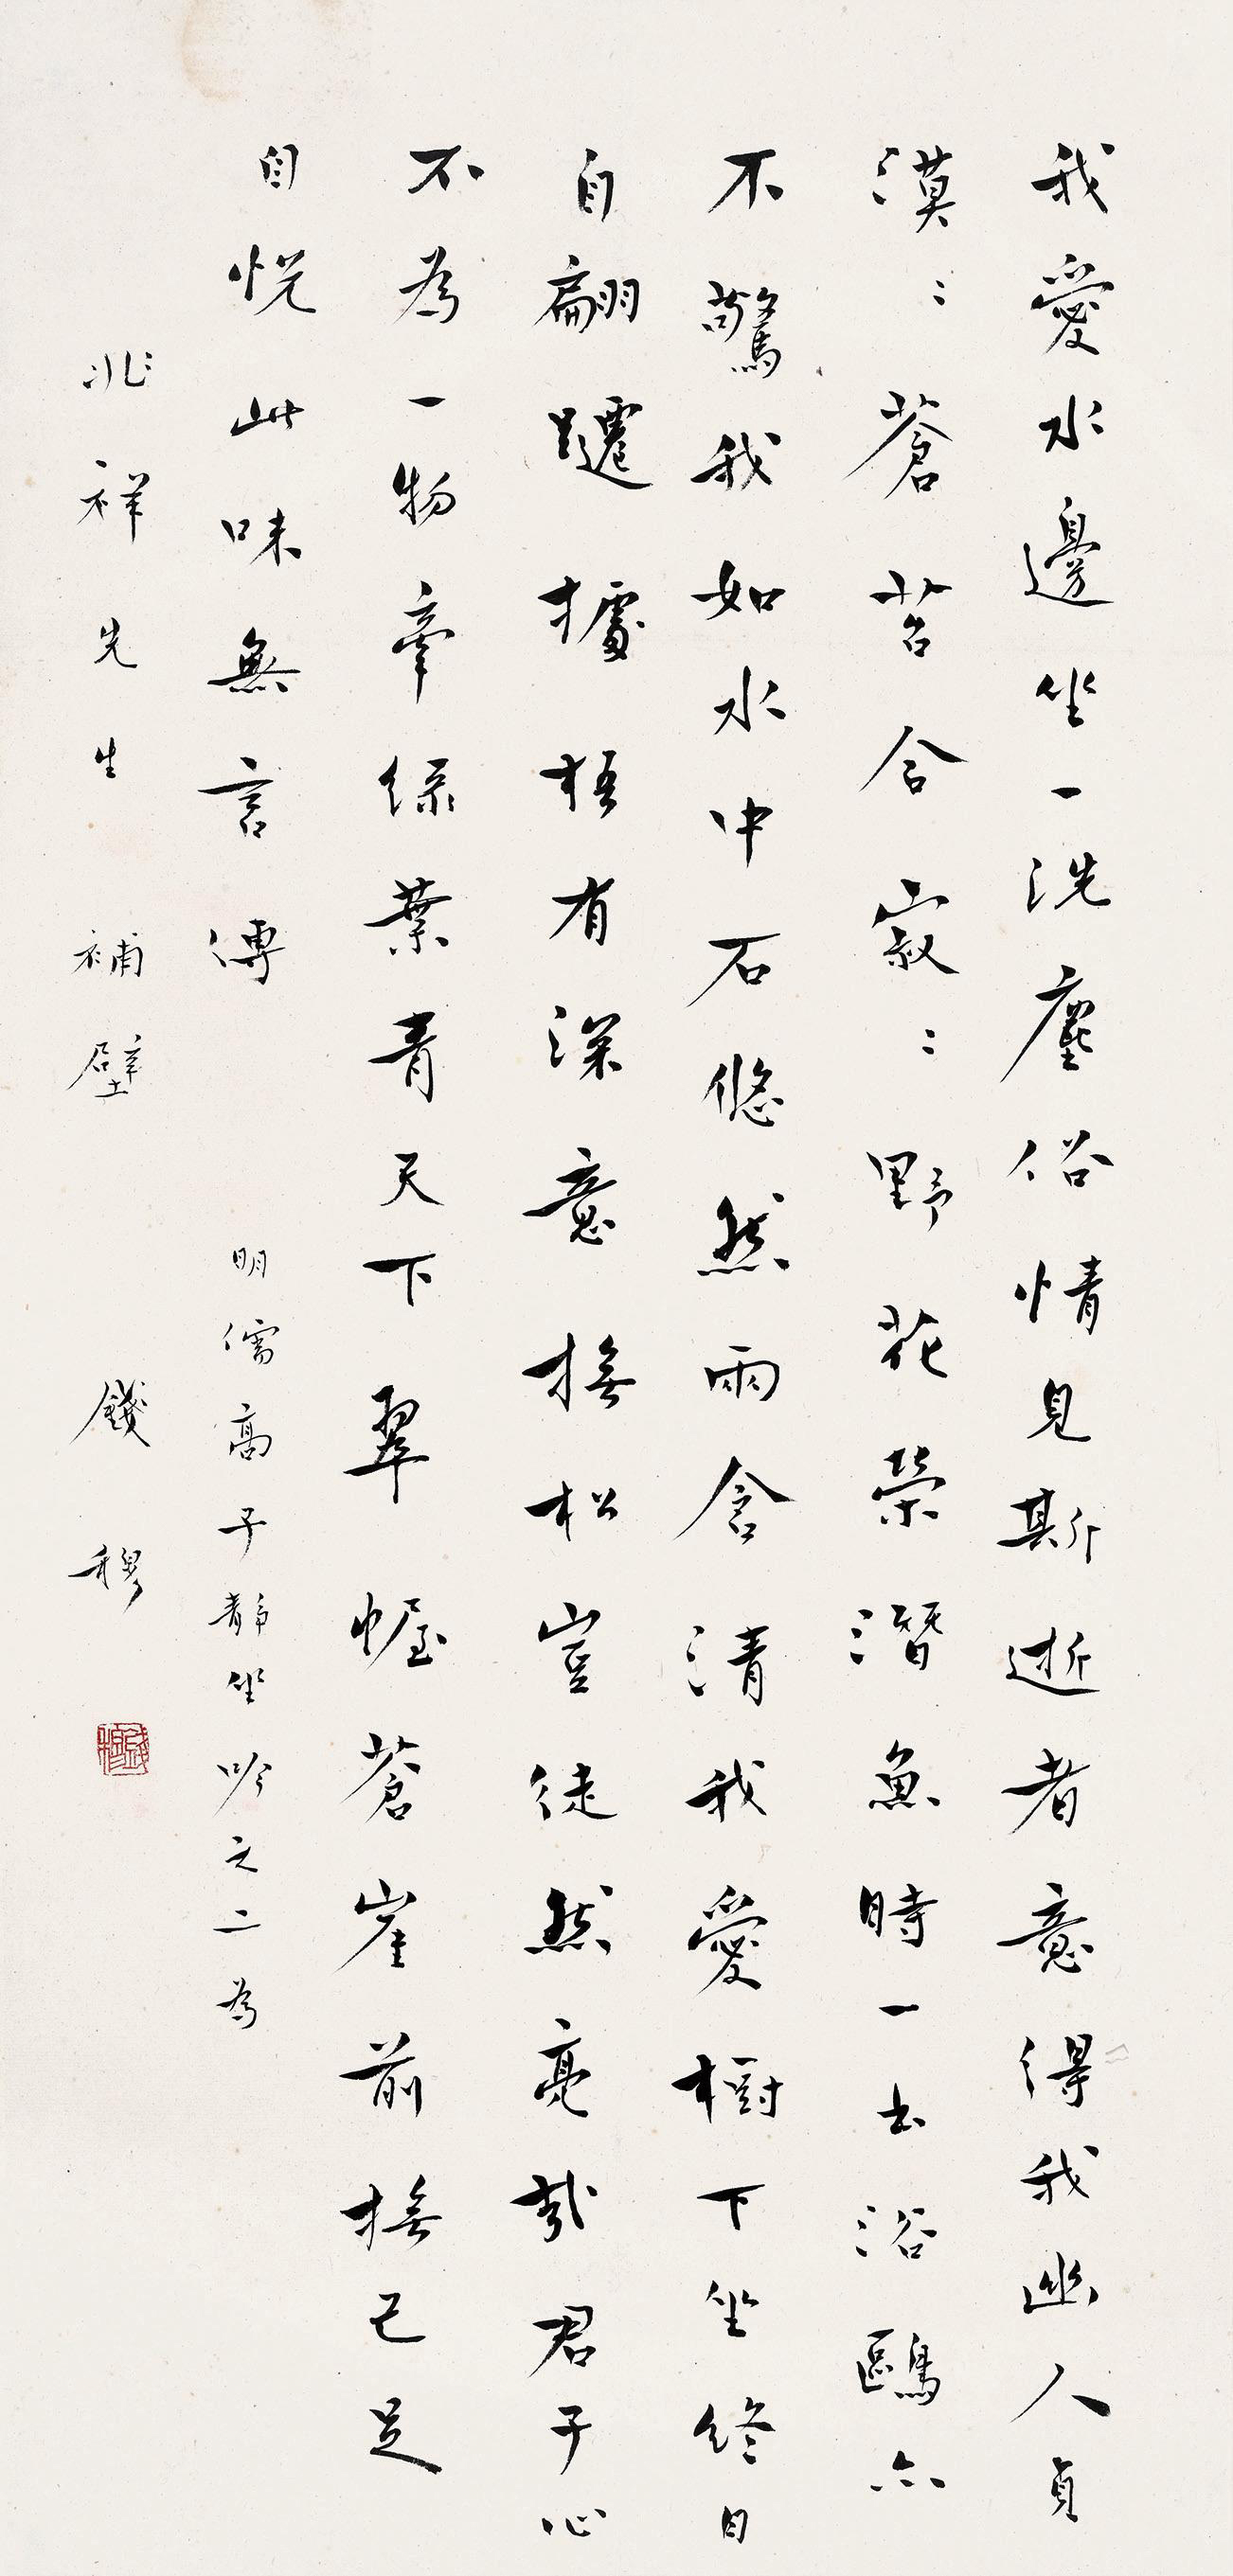 我愛水邊坐一洗塵俗情見斯逝者意得我幽人貞
漠〻蒼苔合寂〻野花榮潛魚時一出浴鷗亦
不驚我如水中石悠然兩含清我愛樹下坐終日
自翩躚據梧有深意撫松豈徒然亮哉君子心
不為一物牽綠葉青天下翠幄蒼崖前撫己足
自悅此味無言傳
明儒高子靜坐吟之二為
兆祥先生 補壁 錢穆
錢穆